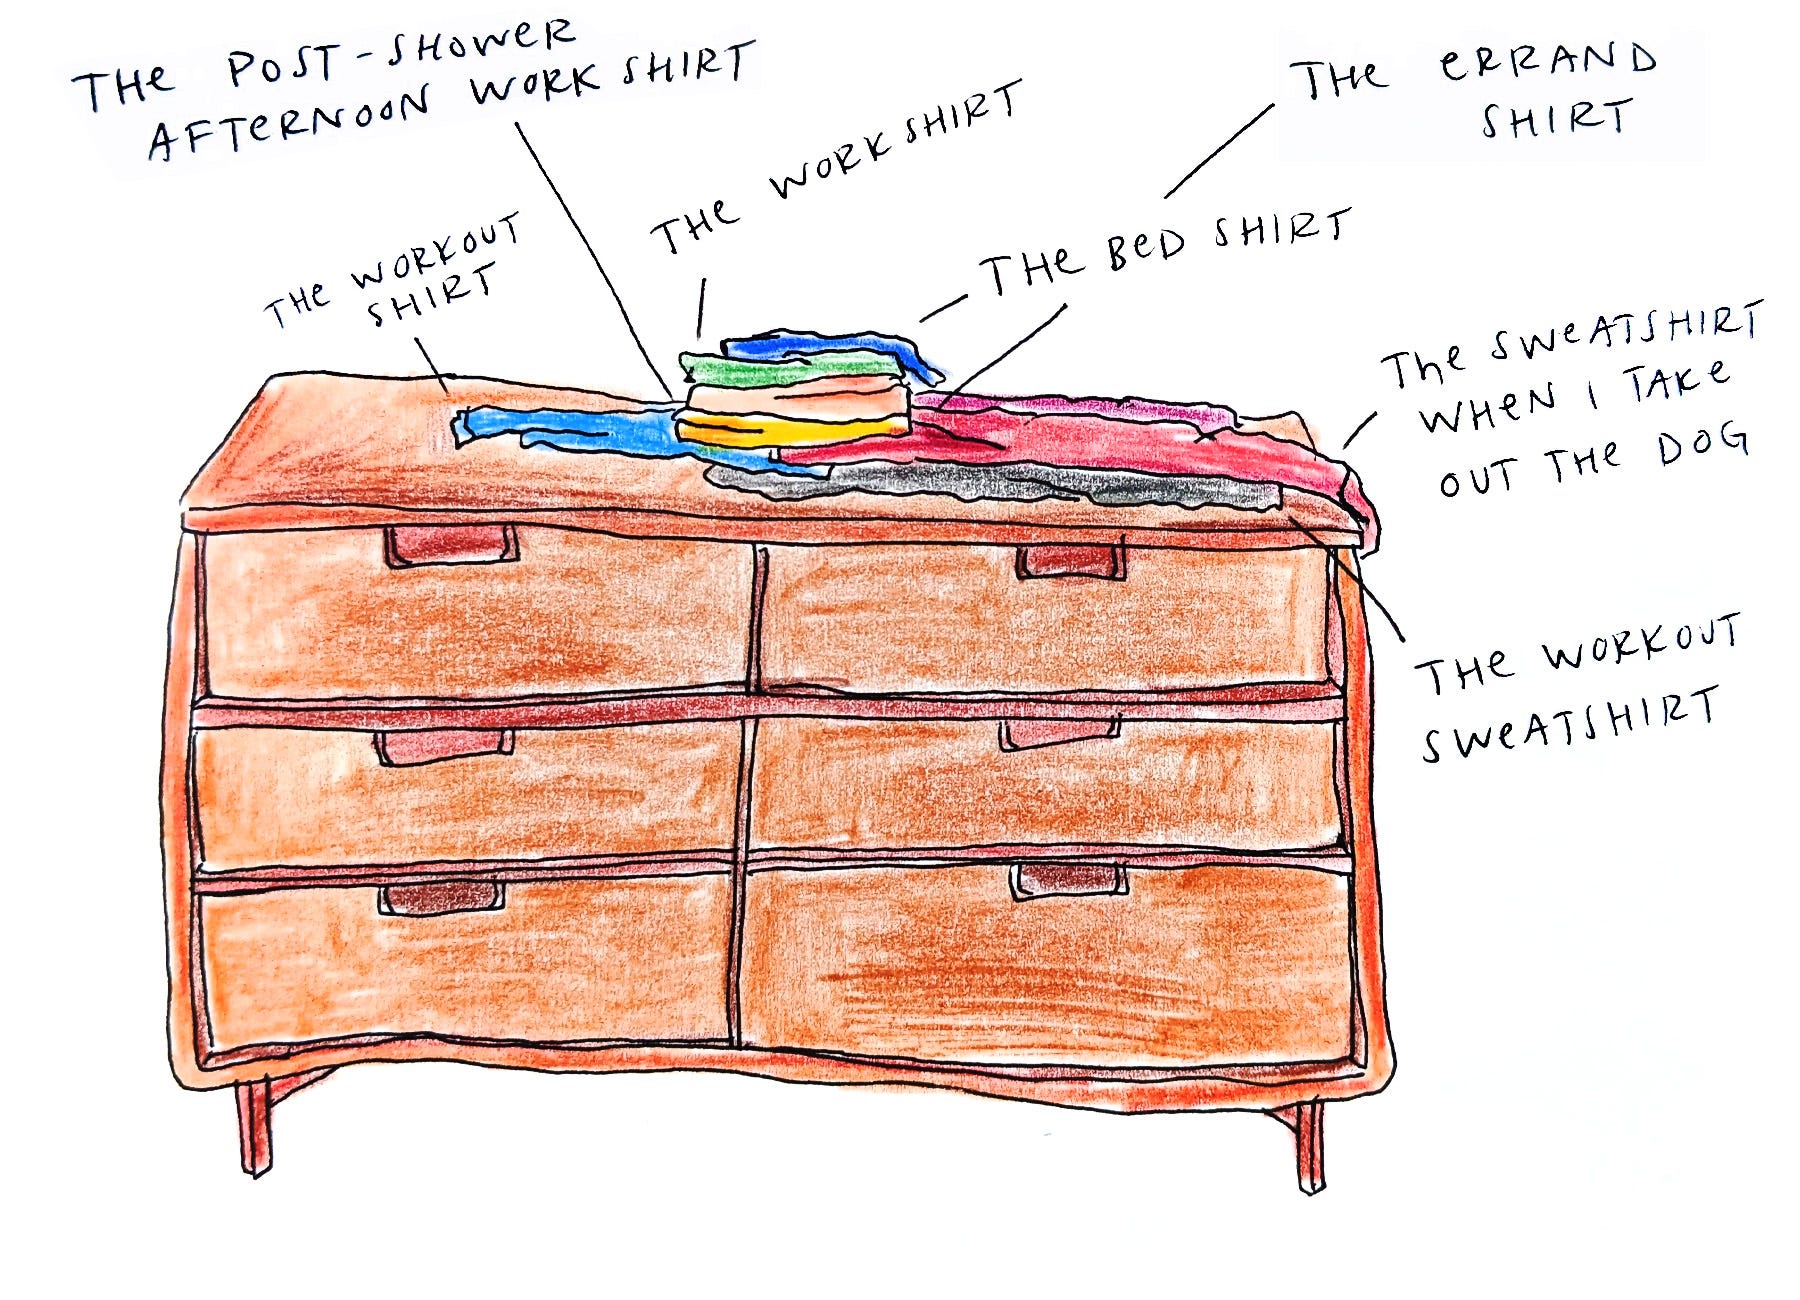 THE POST-SHOWER
AFTERNOON WORK SHIRT
THE WORKOUT
SHIRT
THE WORK SHIRT
THE ERRAND
SHIRT
THE BED SHIRT
THE SWEATSHIRT
WHEN I TAKE
OUT THE DOG
THE WORKOUT
SWEATSHIRT